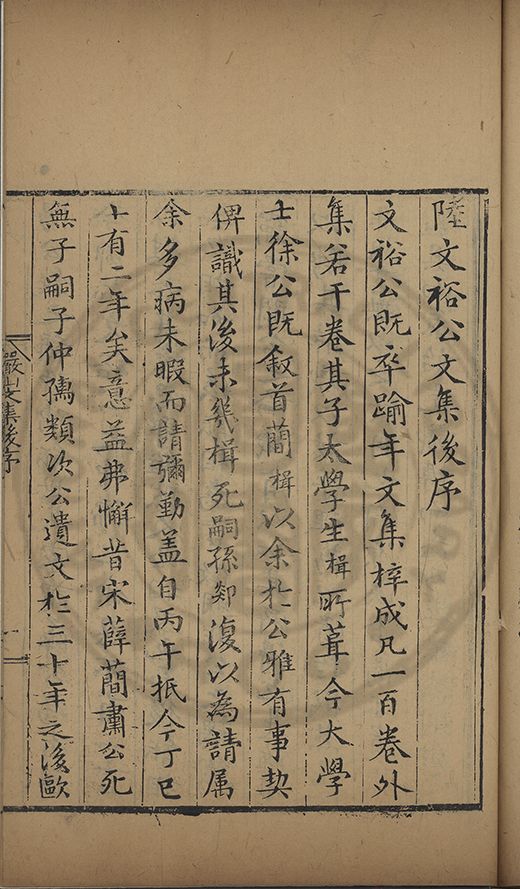 陸文裕公文集後序
文裕公既卒踰年文集梓成凡一百卷外
集若干卷其子太學生楫所葺今大學
士徐公既敘首簡楫以余於公雅有事契
俾識其後未幾楫死嗣孫郯復以為請属
余多病未暇而請彌勤盖自丙午抵今丁巳
十有二年矣意益弗懈昔宋薛簡肅公死
無子嗣子仲孺類次公遺文於三十年之後歐
集後序
一